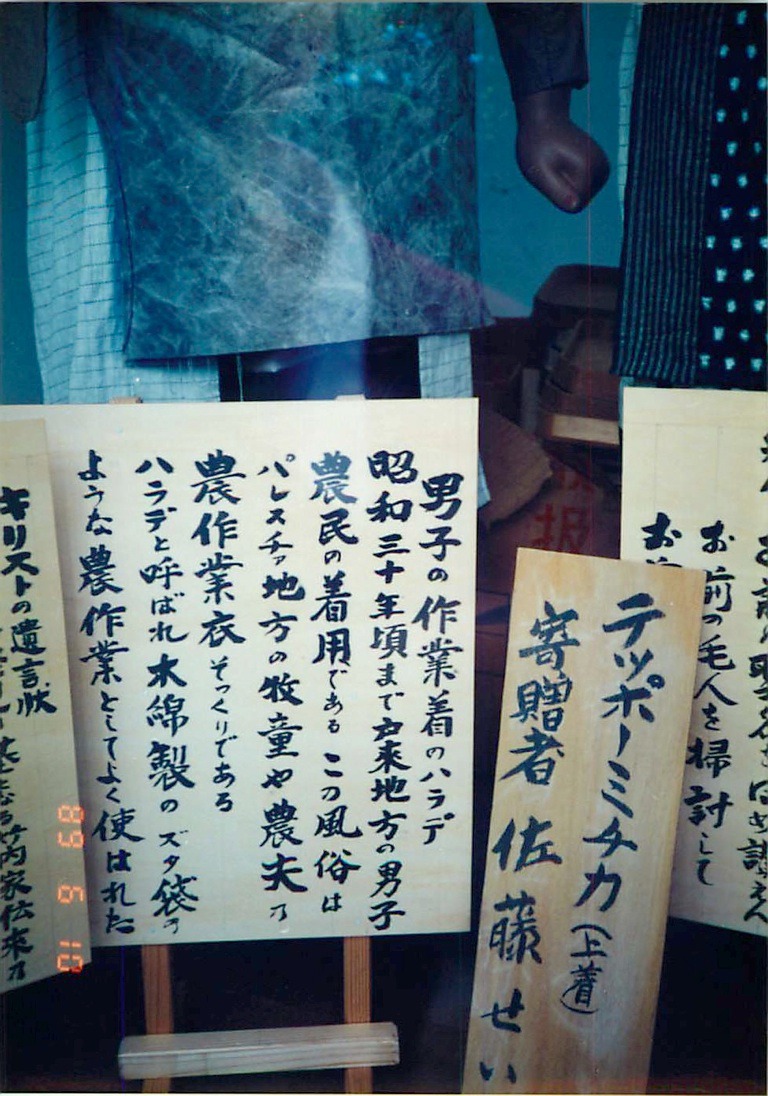 お前の聖名をほめ讃えん
お前の毛人を掃討して
テッポーミチカ(上着)
寄贈者 佐藤せい
男子の作業着のハラデ
昭和三十年頃まで戸来地方の男子
農民の着用である この風俗は
パレスチア地方の牧童や農夫の
農作業衣そっくりである
ハラデと呼ばれ木綿製のズタ袋の
ような農作業としてよく使はれた
キリストの遺言状
竹内家伝来の
89 9 10